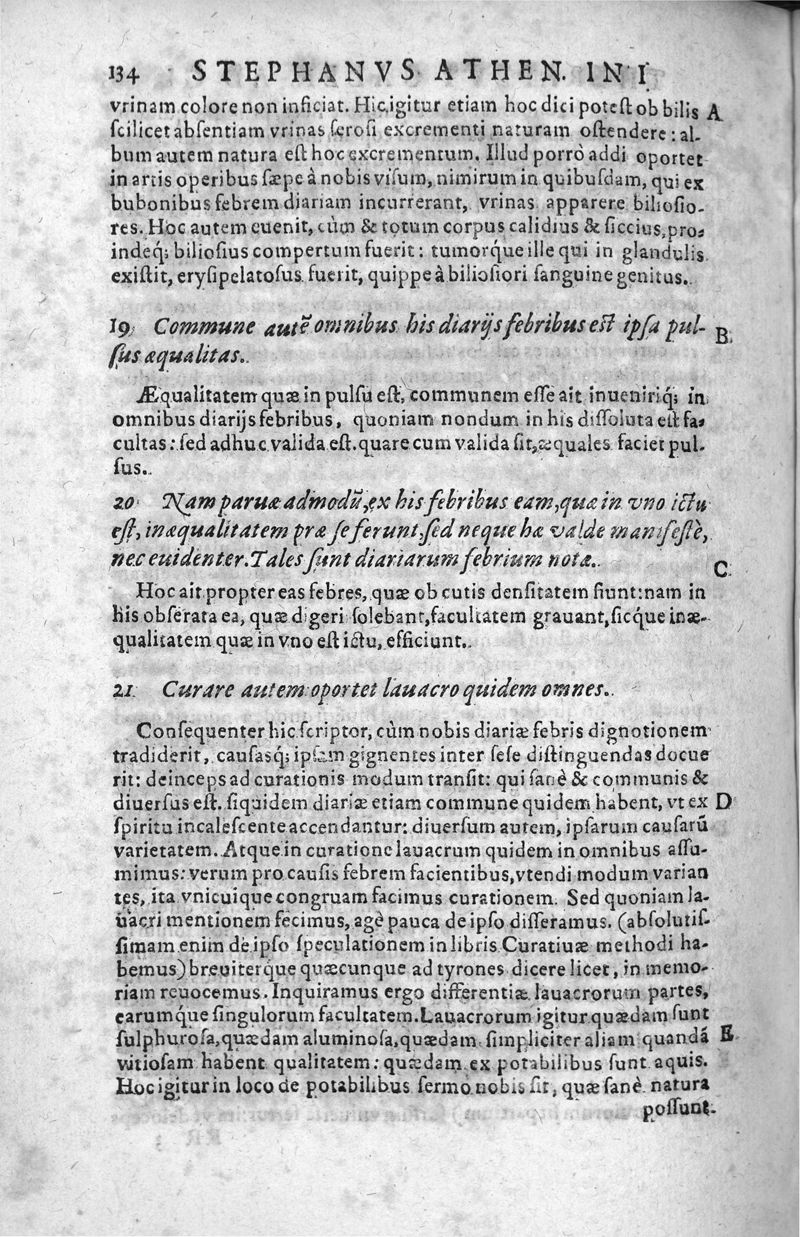 134 STEPHANVS ATHEN. IN I
vrinam colore non inficiat. Hic igitur etiam hoc dici potest ob bilis A
scilicet absentiam vrinas serosi excrementi naturam ostendere: al-
bum autem natura est hoc excrementum. Illud porrò addi oportet
in artis operibus sæpe à nobis visum, nimirum in quibusdam, qui ex
bubonibus febrem diariam incurrerant, vrinas apparere biliosio-
res. Hoc autem euenit, cùm & totum corpus calidius & siccius, pro-
indeq; biliosius compertum fuerit: tumorq́ue ille qui in glandulis
existit, erysipelatosus fuerit, quippe à biliosiori sanguine genitus.
19 Commune autē omnibus his diarijs febribus est ipsa pul- B
sus æqualitas.
Æqualitatem quæ in pulsu est, communem esse ait inueniriq; in
omnibus diarijs febribus, quoniam nondum in his dissoluta est fa-
cultas: sed adhuc valida est. quare cum valida sit, æquales faciet pul-
sus.
20 Nam paruæ admodū, ex his febribus eam, quæ in vno ictu
est, inæqualitatem præ se ferunt, sed neque hæ valde manifestè,
nec euidenter. Tales sunt diariarum febrium notæ. C
Hoc ait propter eas febres, quæ ob cutis densitatem fiunt: nam in
his obserata ea, quæ digeri solebant, facultatem grauant, sicq́ue inæ-
qualitatem quæ in vno est ictu, efficiunt.
21 Curare autem oportet lauacro quidem omnes.
Consequenter hic scriptor, cùm nobis diariæ febris dignotionem
tradiderit, causasq́; ipsam gignentes inter sese distinguendas docue
rit: deinceps ad curationis modum transit: qui sanè & communis &
diuersus est. siquidem diariæ etiam commune quidem habent, vt ex D
spiritu incalescente accendantur: diuersum autem, ipsarum causarū
varietatem. Atque in curatione lauacrum quidem in omnibus assu-
mimus: verum pro causis febrem facientibus, vtendi modum varian
tes, ita vnicuique congruam facimus curationem. Sed quoniam la-
uacri mentionem fecimus, agè pauca de ipso disseramus. (absolutis-
simam enim de ipso speculationem in libris Curatiuæ methodi ha-
bemus) breuiterq́ue quæcunque ad tyrones dicere licet, in memo-
riam reuocemus. Inquiramus ergo differentiæ lauacrorum partes,
earumq́ue singulorum facultatem. Lauacrorum igitur quædam sunt
sulphurosa, quædam aluminosa, quædam simpliciter aliam quandā E
vitiosam habent qualitatem: quædam ex potabilibus sunt aquis.
Hoc igitur in loco de potabilibus sermo nobis sit, quæ sanè natura
possunt